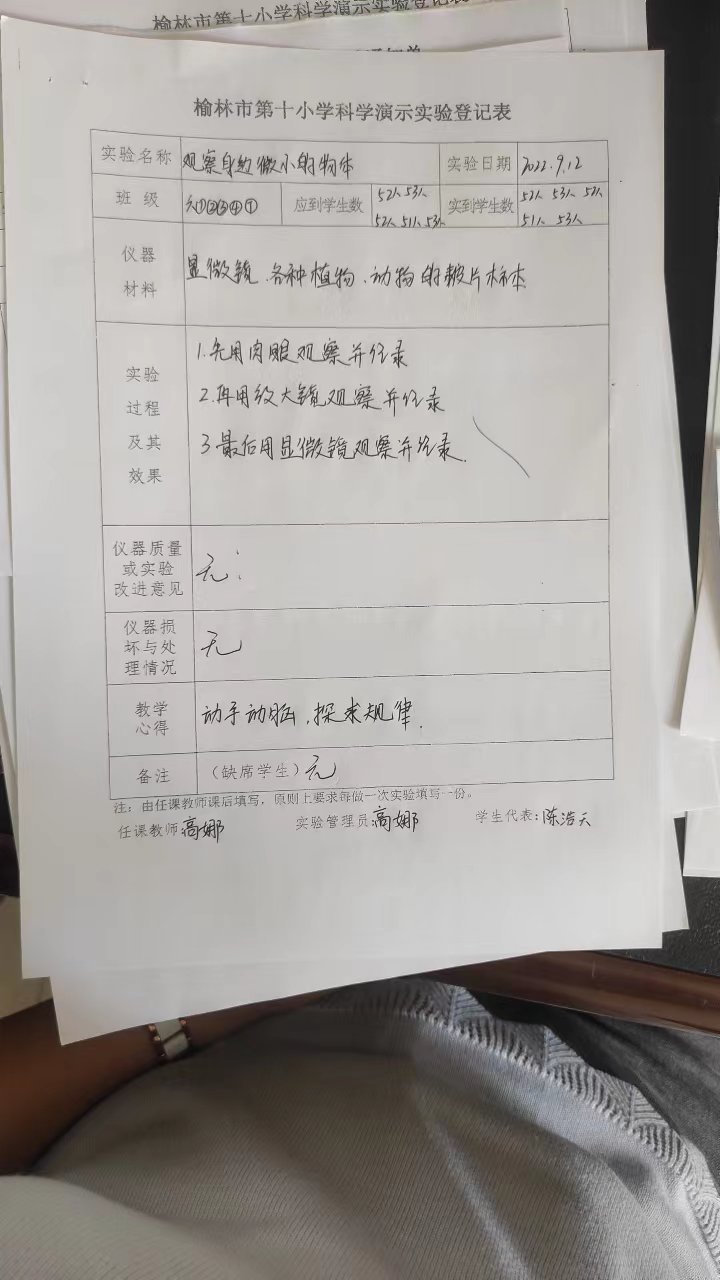 榆林市第十小学科学演示实验登记表
榆林市第十小学科学演示实验登记表
实验名称 观察身边微小的物体 实验日期 2022.9.12
班 级 六①②③④ 应到学生数 52人 53人 52人 51人 53人 实到学生数 52人 53人 52人 51人 53人
仪器
材料
显微镜、各种植物、动物的装片标本
实验
过程
及其
效果
1.先用肉眼观察并记录
2.再用放大镜观察并记录
3.最后用显微镜观察并记录.
仪器质量
或实验
改进意见
无
仪器损
坏与处
理情况
无
教学
心得
动手动脑,探求规律.
备注 (缺席学生) 无
注:由任课教师课后填写,原则上要求每做一次实验填写一份。
任课教师 高娜 实验管理员:高娜 学生代表:陈浩天